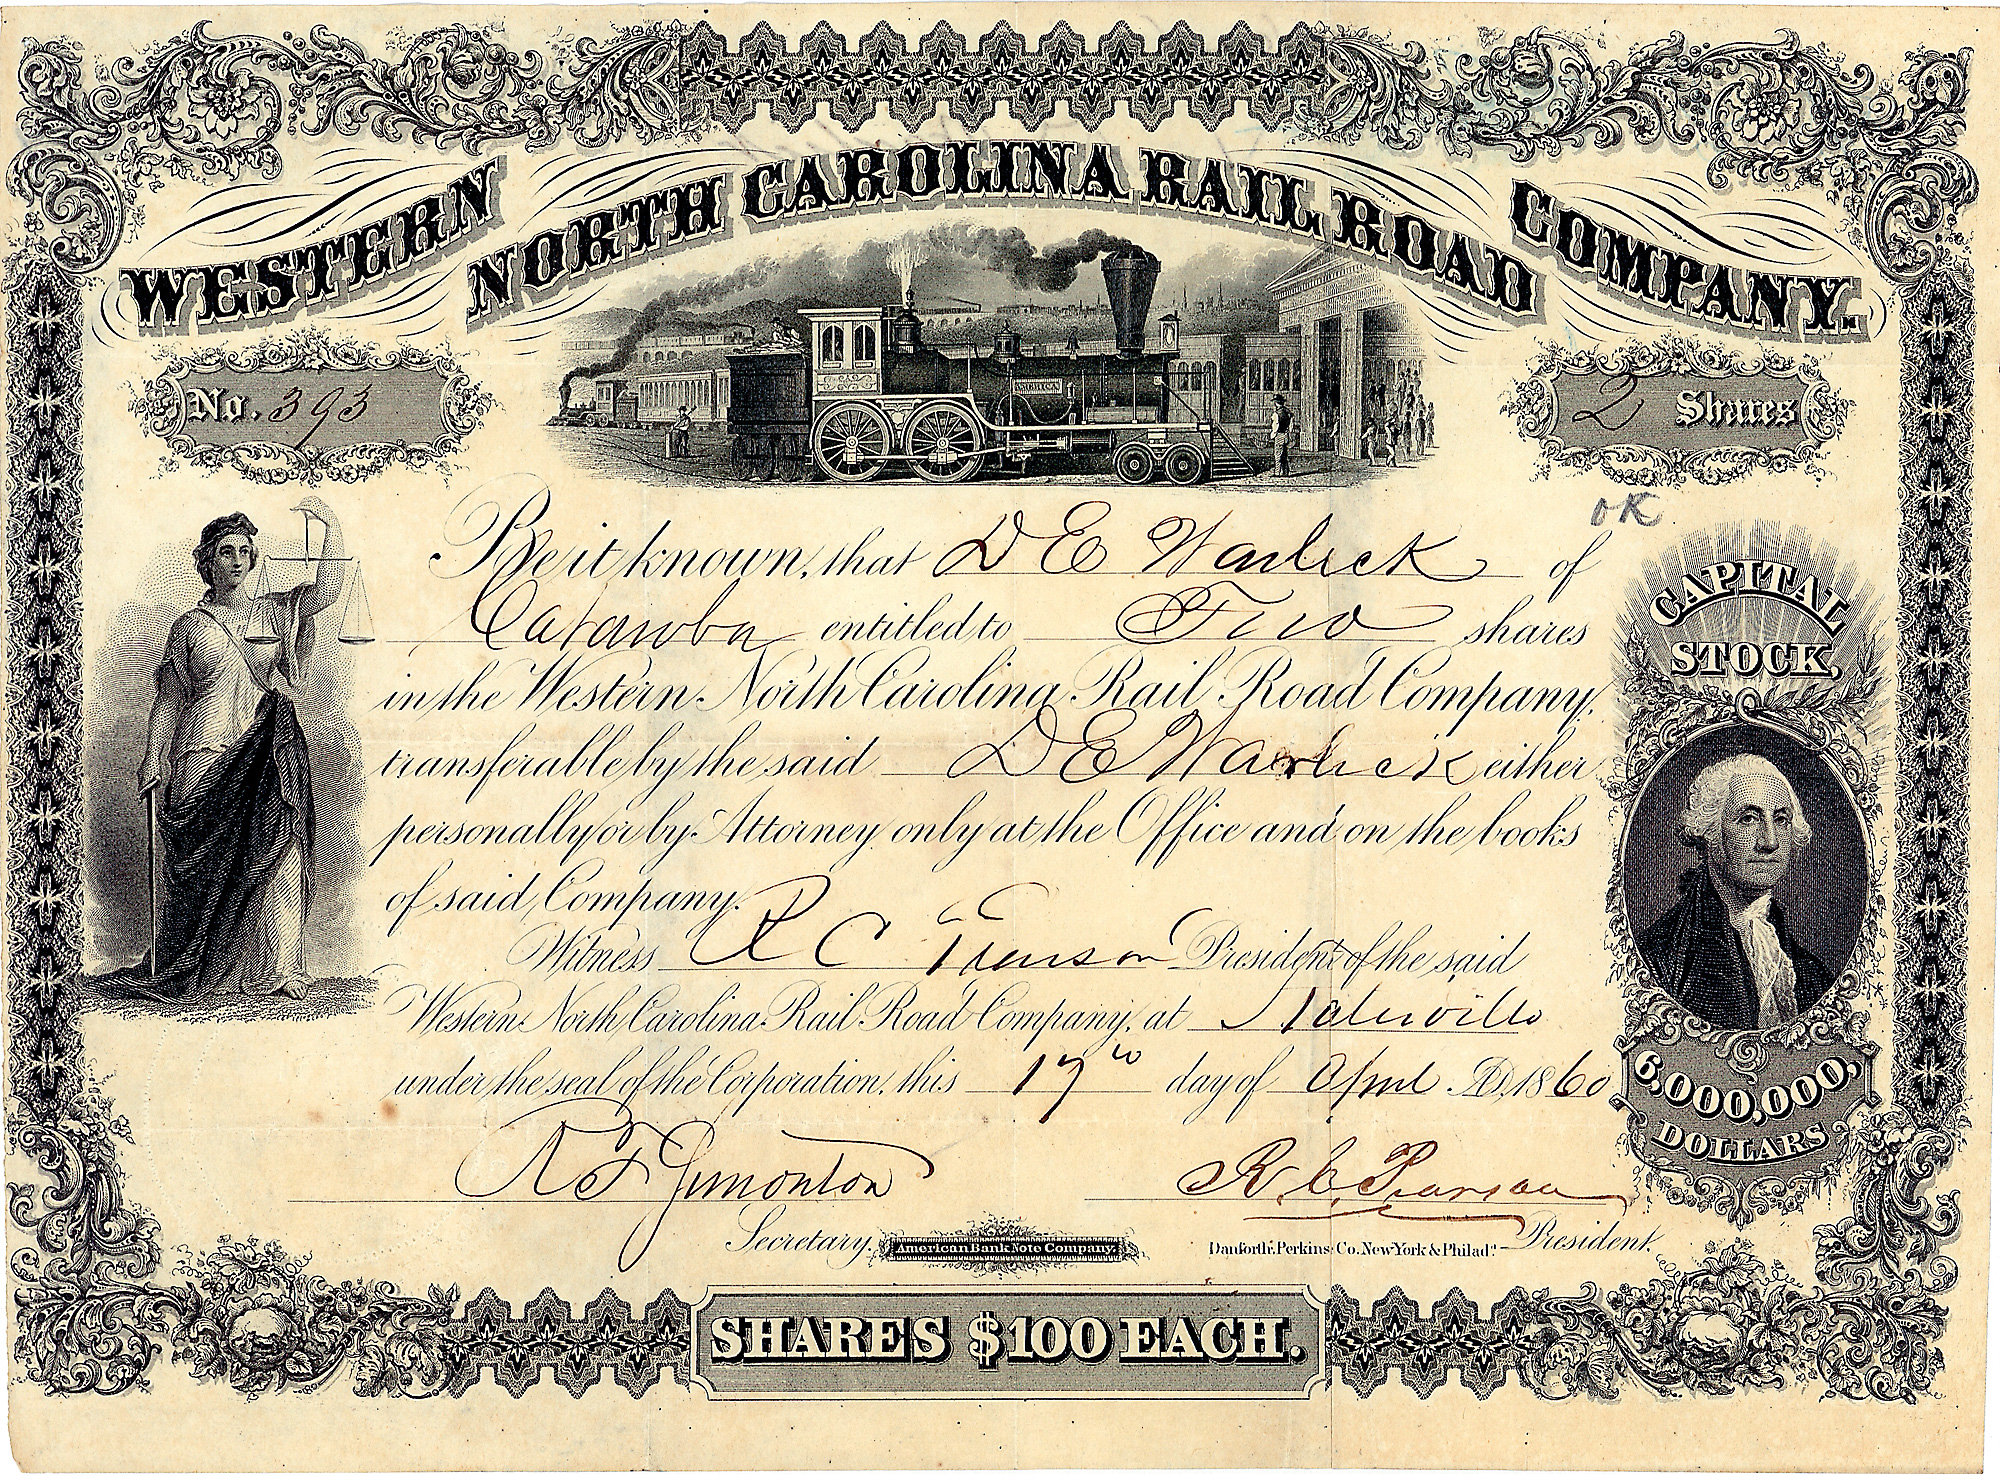 WESTERN NORTH CAROLINA RAIL ROAD COMPANY.
No. 393
2 Shares
OK
Be it known, that D E Warlick of
Catawba entitled to Two shares
in the Western North Carolina Rail Road Company,
transferable by the said D E Warlick either
personally or by Attorney only at the Office and on the books
of said Company.
Witness R C Pearson President of the said
Western North Carolina Rail Road Company, at Statesville
under the seal of the Corporation, this 17th day of April A.D. 1860
R F Simonton
R. C. Pearson
Secretary.
President.
American Bank Note Company.
Danforth, Perkins & Co. New York & Philada.
CAPITAL
STOCK,
6,000,000,
DOLLARS
SHARES $100 EACH.